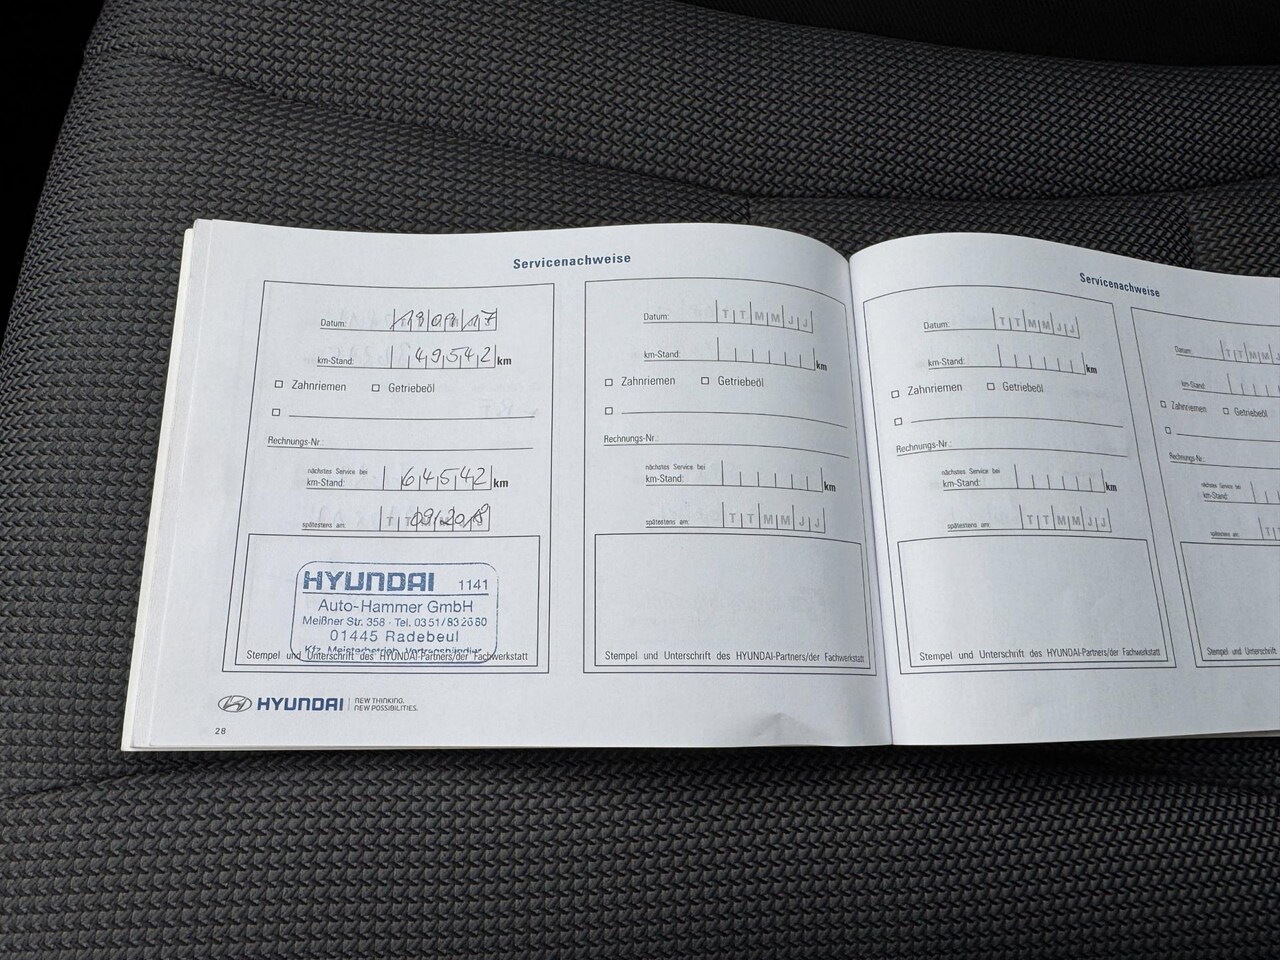 Servicenachweise
Datum: 180917
km-Stand: 49542 km
Zahnriemen Getriebeöl
Rechnungs-Nr.:
nächstes Service bei
km-Stand: 64542 km
spätestens am: T T 09/2018
HYUNDAI 1141
Auto-Hammer GmbH
Meißner Str. 358 · Tel. 0351/8 32 66 60
01445 Radebeul
Kfz-Meisterbetrieb Vertragshändler
Stempel und Unterschrift des HYUNDAI-Partners/der Fachwerkstatt
HYUNDAI NEW THINKING.
NEW POSSIBILITIES.
28
Datum: T T M M J J
km-Stand: km
Zahnriemen Getriebeöl
Rechnungs-Nr.:
nächstes Service bei
km-Stand: km
spätestens am: T T M M J J
Stempel und Unterschrift des HYUNDAI-Partners/der Fachwerkstatt
Servicenachweise
Datum: T T M M J J
km-Stand: km
Zahnriemen Getriebeöl
Rechnungs-Nr.:
nächstes Service bei
km-Stand: km
spätestens am: T T M M J J
Stempel und Unterschrift des HYUNDAI-Partners/der Fachwerkstatt
Datum: T T M M J
km-Stand:
Zahnriemen Getriebeöl
Rechnungs-Nr.:
nächstes Service bei
km-Stand:
spätestens am: T
Stempel und Unterschrift